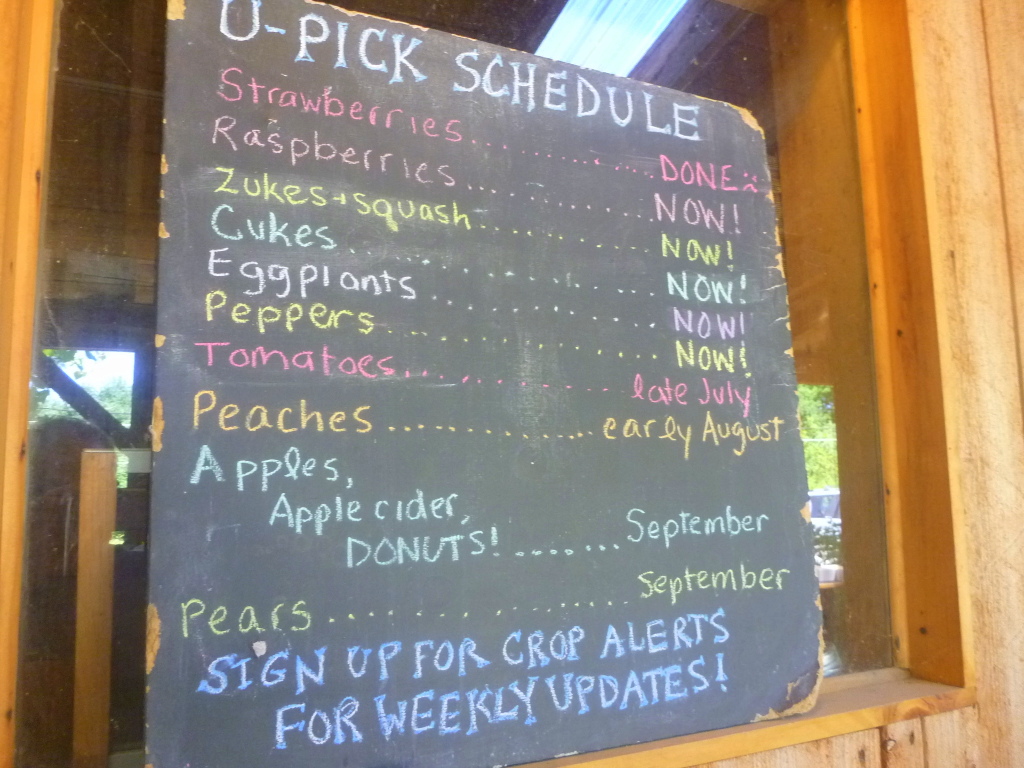 U-PICK SCHEDULE
Strawberries............DONE :(
Raspberries............NOW!
Zukes + squash............NOW!
Cukes............NOW!
Eggplants............NOW!
Peppers............NOW!
Tomatoes............late July
Peaches............early August
Apples,
Apple cider,
DONUTS!.......September
Pears............September
SIGN UP FOR CROP ALERTS
FOR WEEKLY UPDATES!